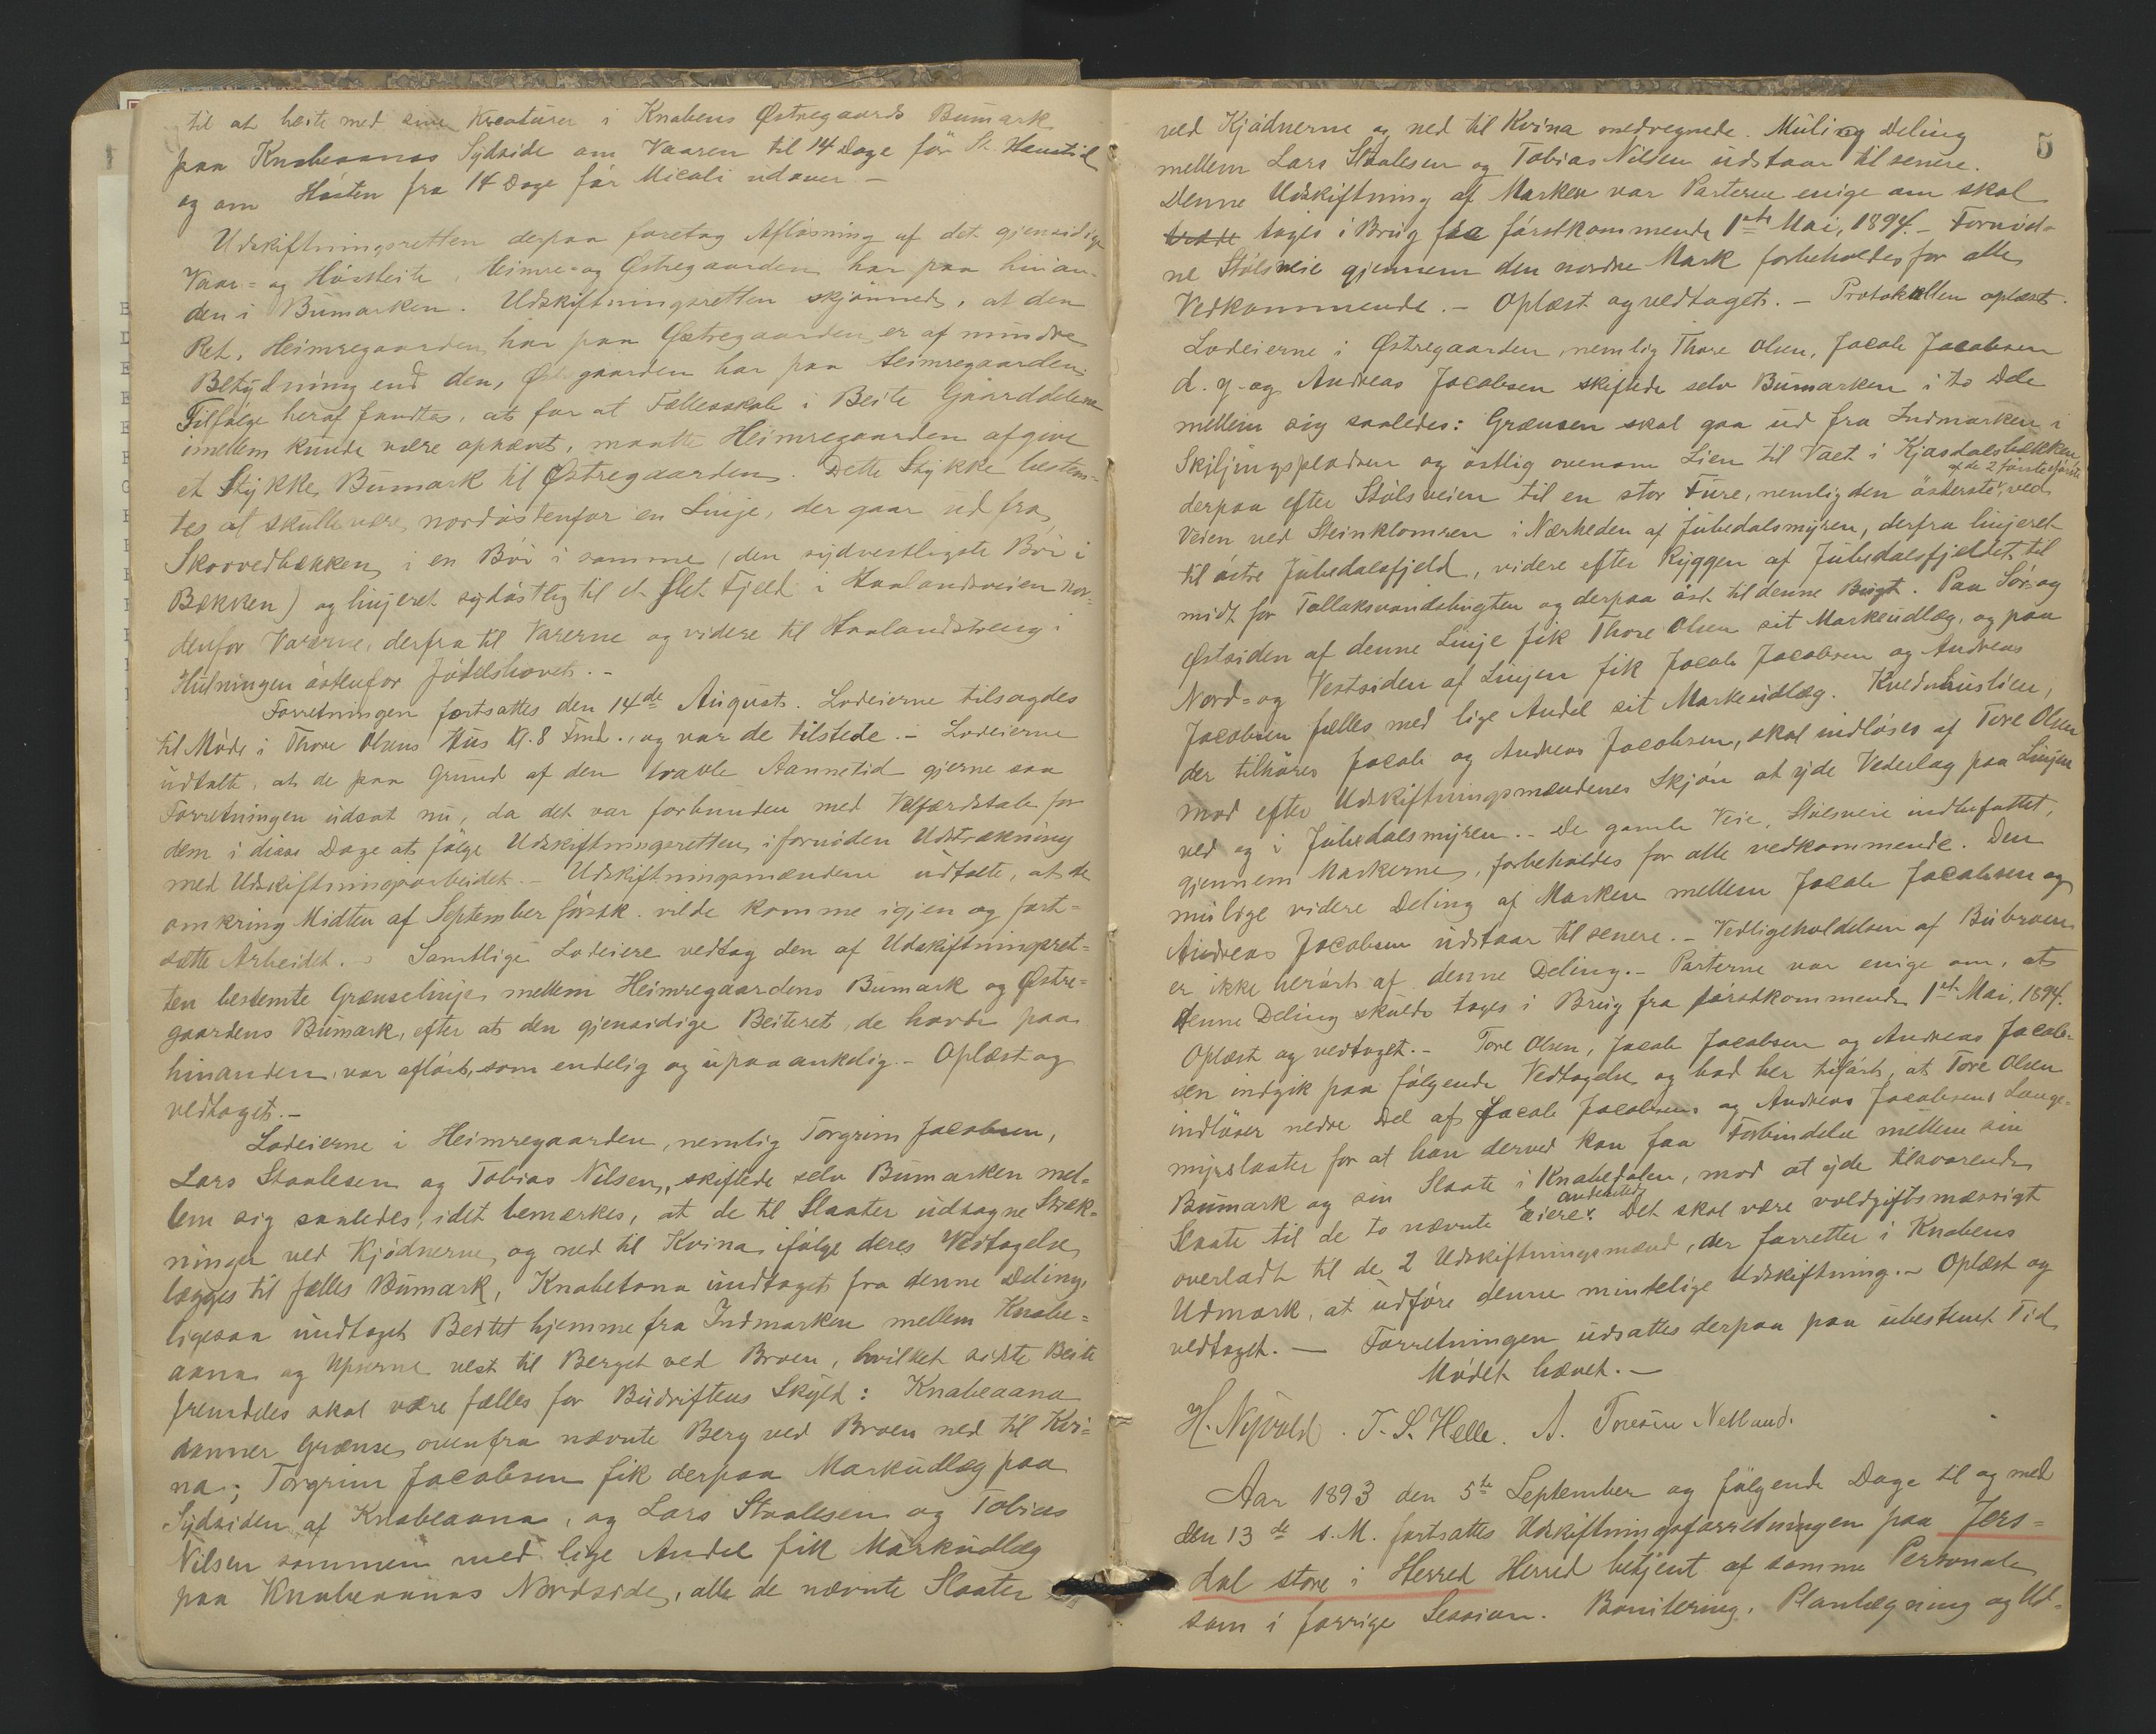 til at beite med sine Kreaturer i Knabens Østregaards Bumark
paa Knabeaanas Sydside om Vaaren til 14 Dage før St. Hanstid
og om Høsten fra 14 Dage før Micali udover –
Udskiftningsretten derpaa foretog Afløsning af det gjensidige
Vaar- og Høstbeite, Heimre- og Østregaarden har paa hinan-
den i Bumarken. Udskiftningsretten skjønnede, at den
Ret, Heimregaarden har paa Østregaarden er af mindre
Betydning end den, Østregaarden har paa Heimregaarden.
Tilfølge heraf fandtes, at for at Fællesskab i Beite Gaarddelene
imellem kunde være ophævet, maatte Heimregaarden afgive
et Stykke Bumark til Østregaarden. Dette Stykke bestem-
tes at skulle være nordøstenfor en Linje, der gaar ud fra
Skorvedbækken i en Bøi i samme (den sydvestligste Bøi i
Bækken) og linjeret sydøstlig til et flet Fjeld i Haalandsveien nor-
denfor Varerne, derfra til Varerne og videre til Haalandstreng i
Hulningen østenfor Jødelshovet. –
Forretningen fortsattes den 14de August. Lodeierne tilsagdes
til Møde i Thore Olsens Hus Kl. 8 Fmd., og var de tilstede. – Lodeierne
udtalte, at de paa Grund af den travle Aannetid gjerne saa
Forretningen udsat nu, da det var forbunden med Velfærdstab for
dem i disse Dage at følge Udskiftningsretten i fornøden Udstrækning
med Udskiftningsarbeidet. – Udskiftningsmændene udtalte, at de
omkring Midten af September førstk. vilde komme igjen og fort-
sætte Arbeidet. – Samtlige Lodeiere vedtog den af Udskiftningsret-
ten bestemte Grænselinje mellem Heimregaardens Bumark og Østre-
gaardens Bumark, efter at den gjensidige Beiteret, de havde paa
hinanden, var afløst, som endelig og upaaankelig. – Oplæst og
vedtaget. –
Lodeierne i Heimregaarden, nemlig Torgrim Jacobsen,
Lars Staalesen og Tobias Nilsen, skiftede selv Bumarken mel-
lem sig saaledes, idet bemærkes, at de til Slaater udtagne Stræk-
ninger ved Kjødnerne og ned til Kvina ifølge deres Vedtagelse
lægges til fælles Bumark, Knabetona undtaget fra denne Deling,
ligesaa undtaget Beitet hjemme fra Indmarken mellem Knabe-
aana og Upserne vest til Berget ved Broen, hvilket sidste Beite
fremdeles skal være fælles for Budriftens Skyld: Knabeaana
danner Grænse ovenfra nævnte Berg ved Broen ned til Kvi-
na; Torgrim Jacobsen fik derpaa Markudlæg paa
Sydsiden af Knabeaana, og Lars Staalesen og Tobias
Nilsen sammen med lige Andel fik Markudlæg
paa Knabeaanas Nordside, alle de nævnte Slaater
5
ved Kjødnerne og ned til Kvina medregnede. Mulig Deling
mellem Lars Staalesen og Tobias Nilsen udstaar til senere.
Denne Udskiftning af Marken var Parterne enige om skal
tages i Brug fra førstkommende 1ste Mai, 1894. – Fornød-
ne Stølsveie gjennem den nordre Mark forbeholdes for alle
Vedkommende. – Oplæst og vedtaget. – Protokollen oplæst.
Lodeierne i Østregaarden nemlig Thore Olsen, Jacob Jacobsen
d. y. og Andreas Jacobsen skiftede selv Bumarken i to Dele
mellem sig saaledes: Grænsen skal gaa ud fra Indmarken i
Skiljingspladsen og østlig ovenom Lien til Vaet i Kjasdalsbækken
af de 2 første større
derpaa efter Stølsveien til en stor Fure, nemlig den østerste, ved
Veien ved Steinklomren i Nærheden af Jubedalsmyren, derfra linjeret
til østre Jubedalsfjeld, videre efter Ryggen af Jubedalsfjeldet til
midt for Tallaksvandsbugten og derpaa øst til denne Bugt. Paa Sør- og
Østsiden af denne Linje fik Thore Olsen sit Markeudlæg, og paa
Nord- og Vestsiden af Linjen fik Jacob Jacobsen og Andreas
Jacobsen fælles med lige Andel sit Markeudlæg. Kvednhuslien,
der tilhører Jacob og Andreas Jacobsen, skal indløses af Tore Olsen
mod efter Udskiftningsmændenes Skjøn at yde Vederlag paa Linjen
ved og i Jubedalsmyren. – De gamle Veie, Stølsveie indbefattet,
gjennem Markerne, forbeholdes for alle vedkommende. Den
mulige videre Deling af Marken mellem Jacob Jacobsen og
Andreas Jacobsen udstaar til senere. – Vedligeholdelsen af Bubroen
er ikke berørt af denne Deling. – Parterne var enige om, at
denne Deling skulde tages i Brug fra førstkommende 1ste Mai, 1894.
Oplæst og vedtaget. – Tore Olsen, Jacob Jacobsen og Andreas Jacob-
sen indgik paa følgende Vedtagelse og bad her tilført, at Tore Olsen
indløser nedre Del af Jacob Jacobsens og Andreas Jacobsens Lange-
myrslaater for at han derved kan faa Forbindelse mellem sin
Bumark og sin Slaate i Knabedalen, mod at yde tilsvarende
andetsteds
Slaate til de to nævnte Eiere. Det skal være voldgiftsmæssigt
overladt til de 2 Udskiftningsmænd, der forretter i Knabens
Udmark, at udføre denne mindelige Udskiftning. – Oplæst og
vedtaget. – Forretningen udsattes derpaa paa ubestemt Tid
Mødet hævet. –
H. Nyvold. T. S. Helle. A. Toresen Netland.
Aar 1893 den 5te September og følgende Dage til og med
den 13de s. M. fortsattes Udskiftningsforretningen paa Jers-
dal store i Herred Herred betjent af samme Personale
som i forrige Session. Bonitering, Planlægning og Ud-